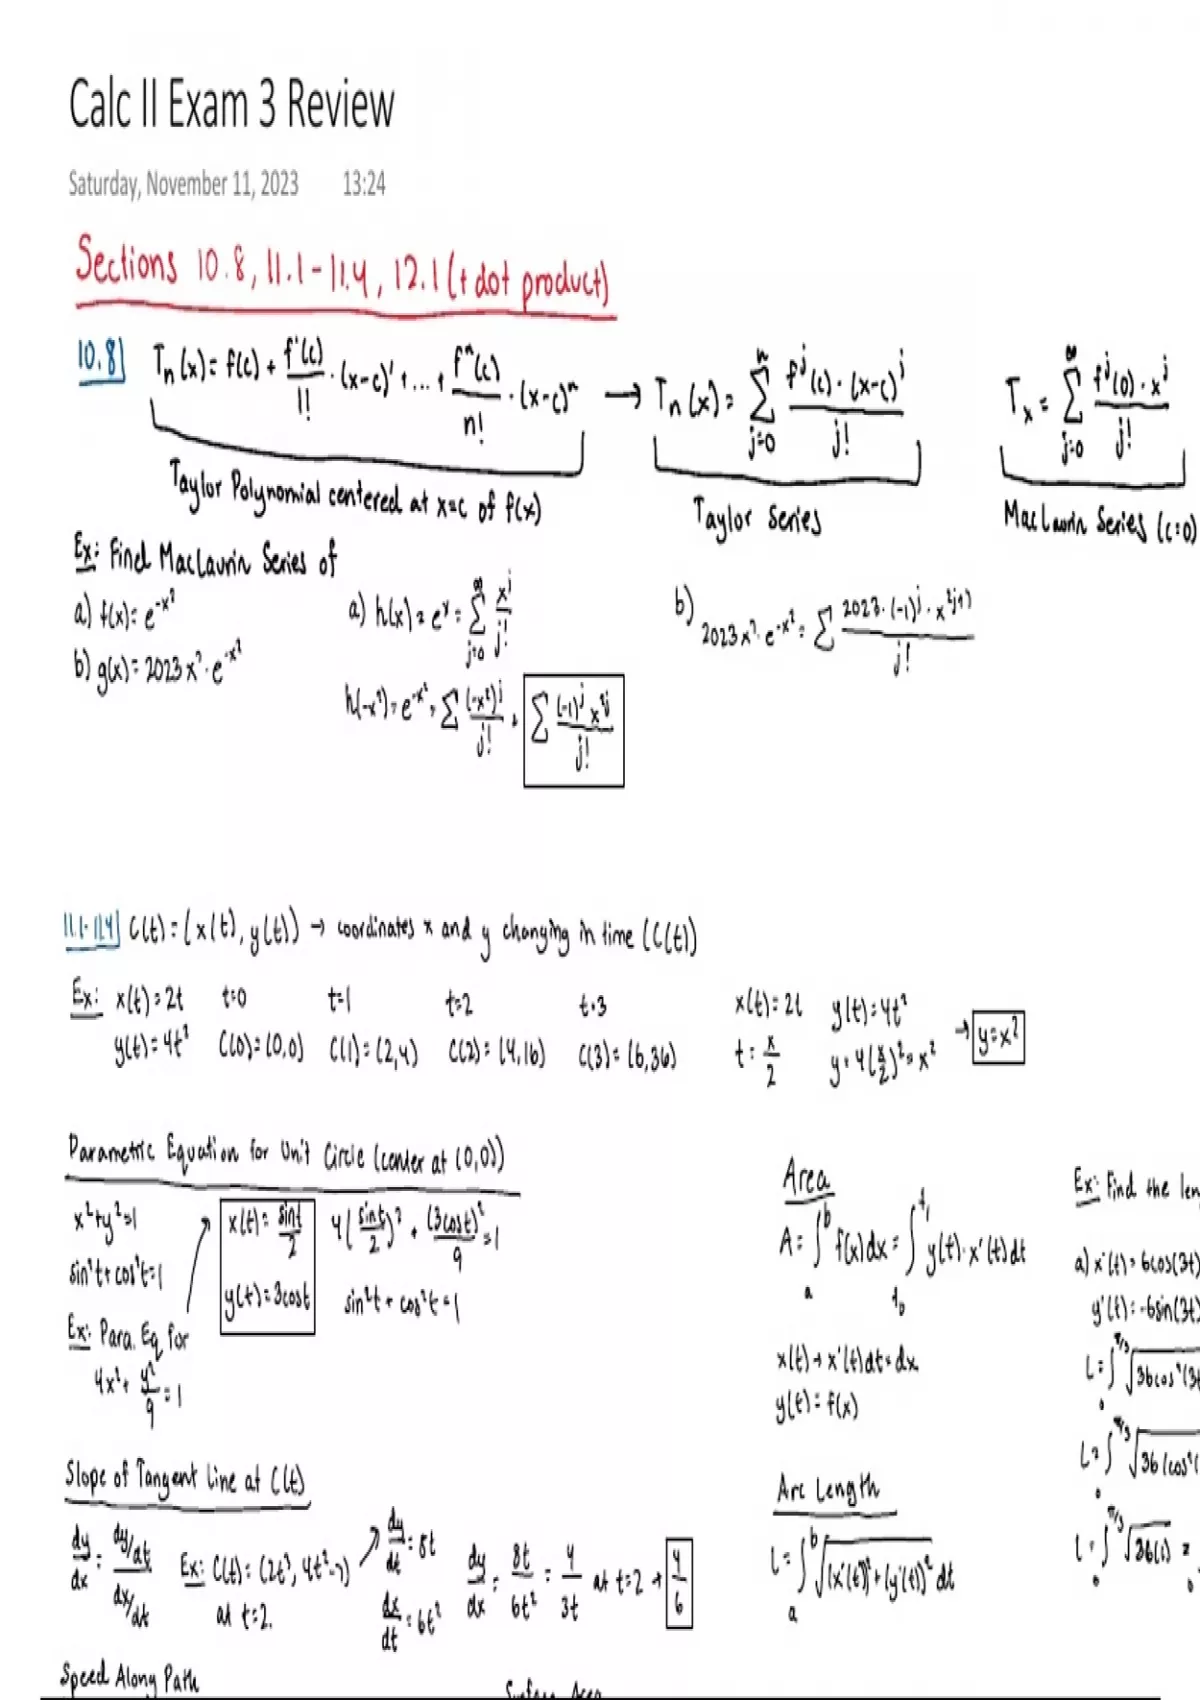 Calc II Exam 3 Review
Saturday, November 11, 2023 13:24
Sections 10.8, 11.1-11.4, 12.1 (+ dot product)
10.8] Tn(x) = f(c) + f'(c)/1! · (x-c)' + ... + fⁿ(c)/n! · (x-c)ⁿ → Tn(x) = Σ j=0 n fʲ(c)·(x-c)ʲ / j! Tx = Σ j=0 ∞ fʲ(0)·xʲ / j!
Taylor Polynomial centered at x=c of f(x) Taylor Series MacLaurin Series (c=0)
Ex: Find MacLaurin Series of
a) f(x) = e^-x² a) h(x) = eˣ = Σ j=0 ∞ xʲ/j! b) 2023x²·e^-x² = Σ 2023·(-1)ʲ·x^2j+2 / j!
b) g(x) = 2023x²·e^-x²
h(-x²) = e^-x² = Σ (-x²)ʲ/j! = Σ (-1)ʲ x²ʲ / j!
11.1-11.4] C(t) = (x(t), y(t)) → coordinates x and y changing in time (C(t))
Ex: x(t) = 2t t=0 t=1 t=2 t=3 x(t) = 2t y(t) = 4t²
y(t) = 4t² C(0) = (0,0) C(1) = (2,4) C(2) = (4,16) C(3) = (6,36) t = x/2 y = 4(x/2)² = x² → y=x²
Parametric Equation for Unit Circle (center at (0,0))
x²+y²=1 x(t) = sint/2 4(sint/2)² + (3cost)²/9 = 1
sin²t+cos²t=1 y(t) = 3cost sin²t + cos²t = 1
Ex: Para. Eq for
4x² + y²/9 = 1
Area
A = ∫ a b f(x)dx = ∫ t₀ t₁ y(t)·x'(t)dt
x(t) → x'(t)dt = dx
y(t) = f(x)
Ex: Find the
a) x'(t) = 6cos(3t)
y'(t) = -6sin(3t)
L = ∫ 0 π/3 √36cos²(3t
L = ∫ 0 π/3 √36(cos²(
L = ∫ 0 π/3 √36(1) =
Slope of Tangent Line at C(t)
dy/dx = dy/dt / dx/dt Ex: C(t) = (2t³, 4t²-7) at t=2. dy/dt = 8t dx/dt = 6t² dy/dx = 8t/6t² = 4/3t at t=2 → 4/6
Arc Length
L = ∫ a b √(x'(t))² + (y'(t))² dt
Speed Along Path
Surface Area